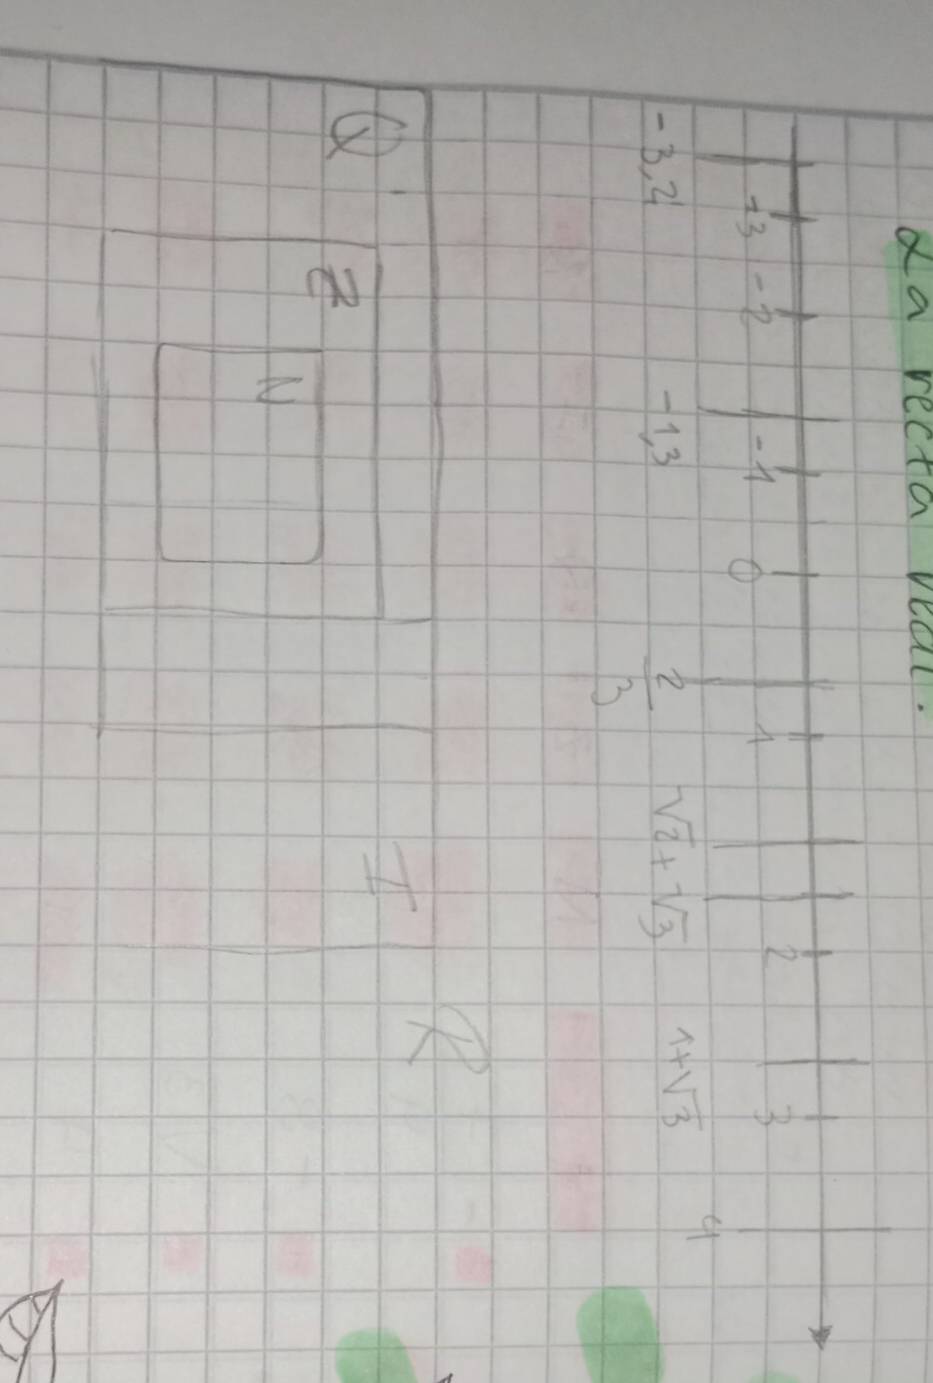 La recta real.
-3 -2 -1 0 1 2 3 4
-3,2 -1,3 2/3 √2 + √3 1+√3
R
Q I
Z
N